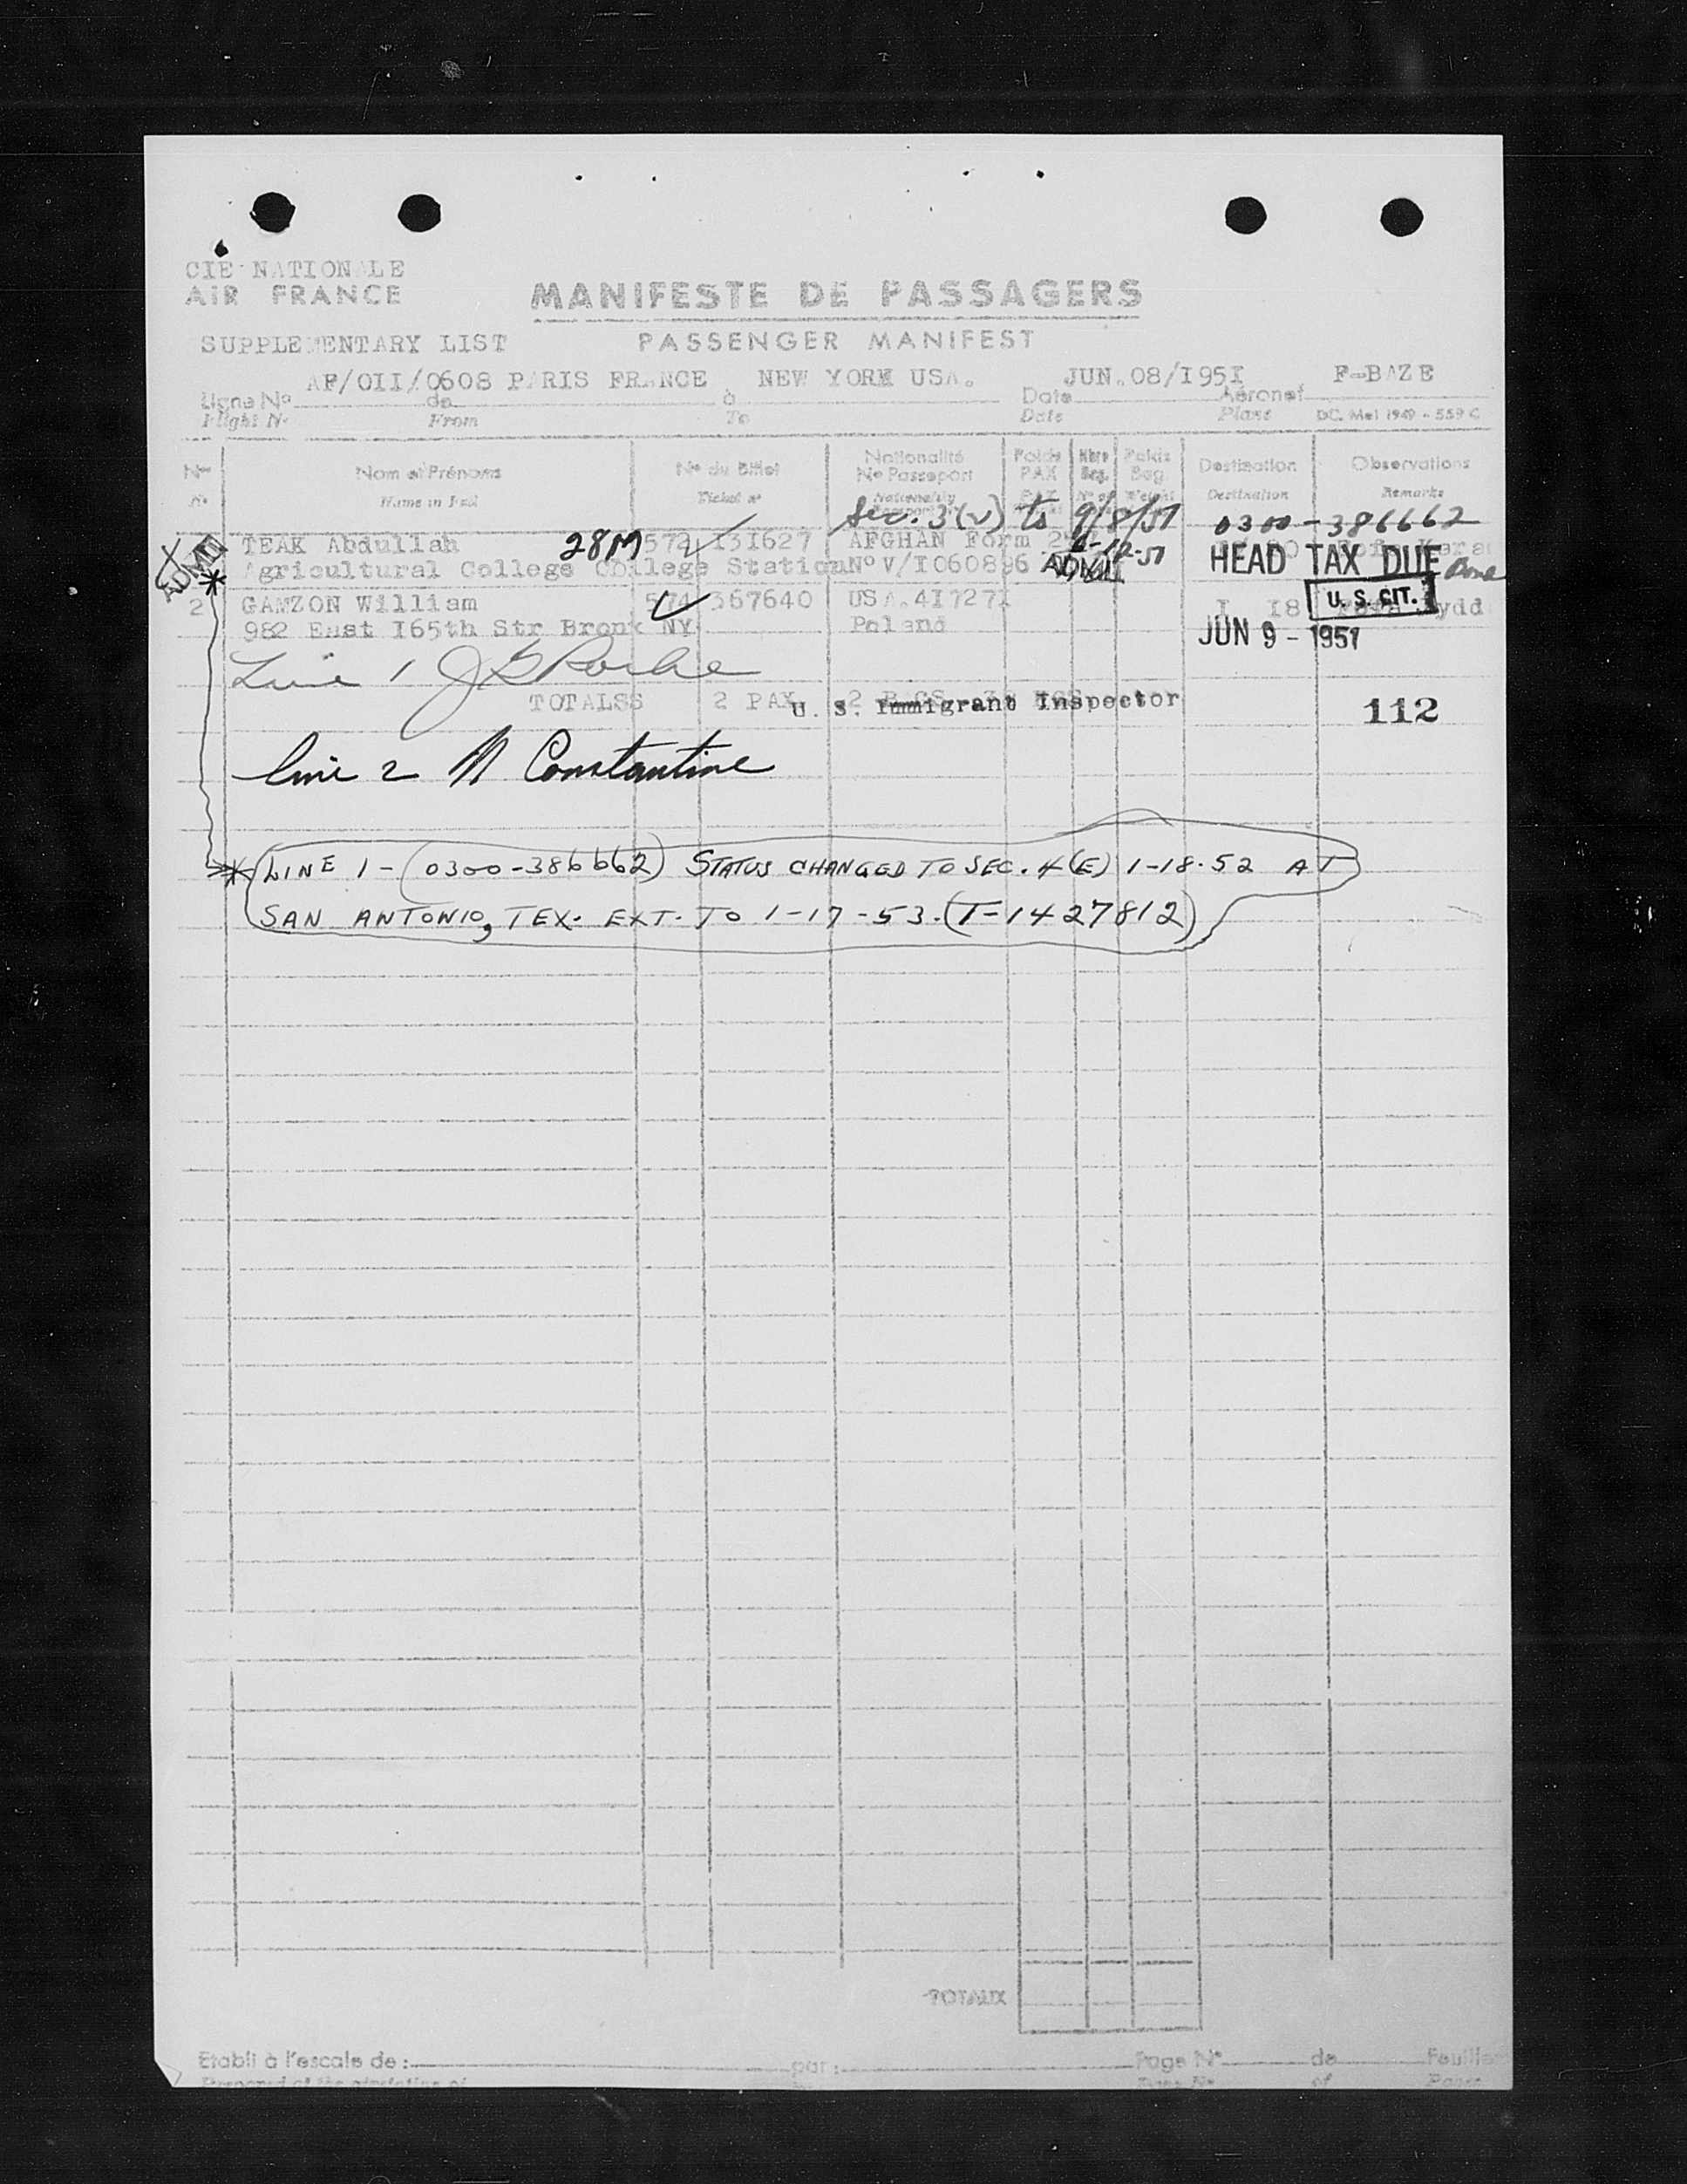 CIE NATIONALE
AIR FRANCE
MANIFESTE DE PASSAGERS
SUPPLEMENTARY LIST
PASSENGER MANIFEST
AF/OII/0608 PARIS FRANCE NEW YORK USA. JUN.08/I95I F-BAZE
Ligne No de à Date Aéronef
Flight No From To Date Plane DC. Mel 1949 - 559 C
Nos Nom et Prénoms No du Billet Nationalité No Passeport Poids PAX Nbre Bag. Poids Bag Destination Observations
No Name in Full Ticket no Nationality Destination Remarks
Sec. 3(2) to 9/8/51 0300-386662
ADMIT TEAK Abdullah 28M 572 I3I627 AFGHAN Form HEAD TAX DUE
Agricultural College College Station No V/I060896 ADMIT 6-12-51
2 GAMZON William 574 367640 USA.4I727I I I8 U. S. CIT. Lydd
982 East I65th Str Bronx NY Poland JUN 9 - 1951
Line 1 J G Roche
TOTALSS 2 PAX 2 BAGS U. S. Immigrant Inspector 112
line 2 N Constantine
* LINE 1 - (0300-386662) STATUS CHANGED TO SEC. 4(E) 1-18-52 AT
SAN ANTONIO, TEX. EXT. TO 1-17-53. (T-1427812)
TOTAUX
Etabli à l'escale de : par : Page No de Feuilles